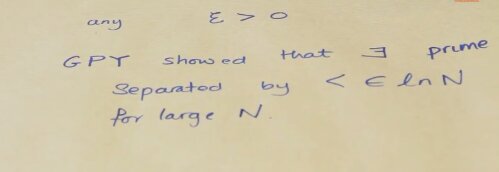 any ε > 0
GPY showed that ∃ prime
separated by < ∈ ln N
for large N.